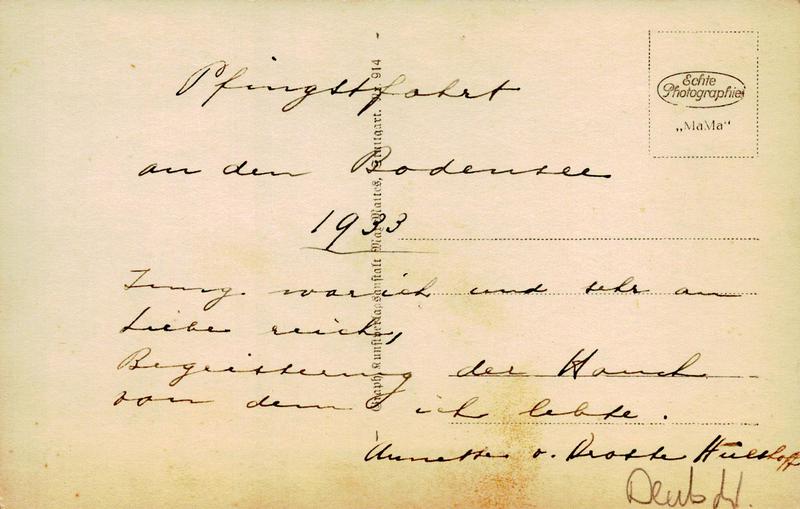 Pfingstfahrt
an den Bodensee
1933
Jung war ich und sehr an
Liebe reich,
Begeisterung der Hauch
von dem ich lebte.
Annette v. Droste Hülshoff
Echte
Photographie
„MaMa“
Graph. Kunstverlagsanstalt Max Maites, Stuttgart. Nr. 914